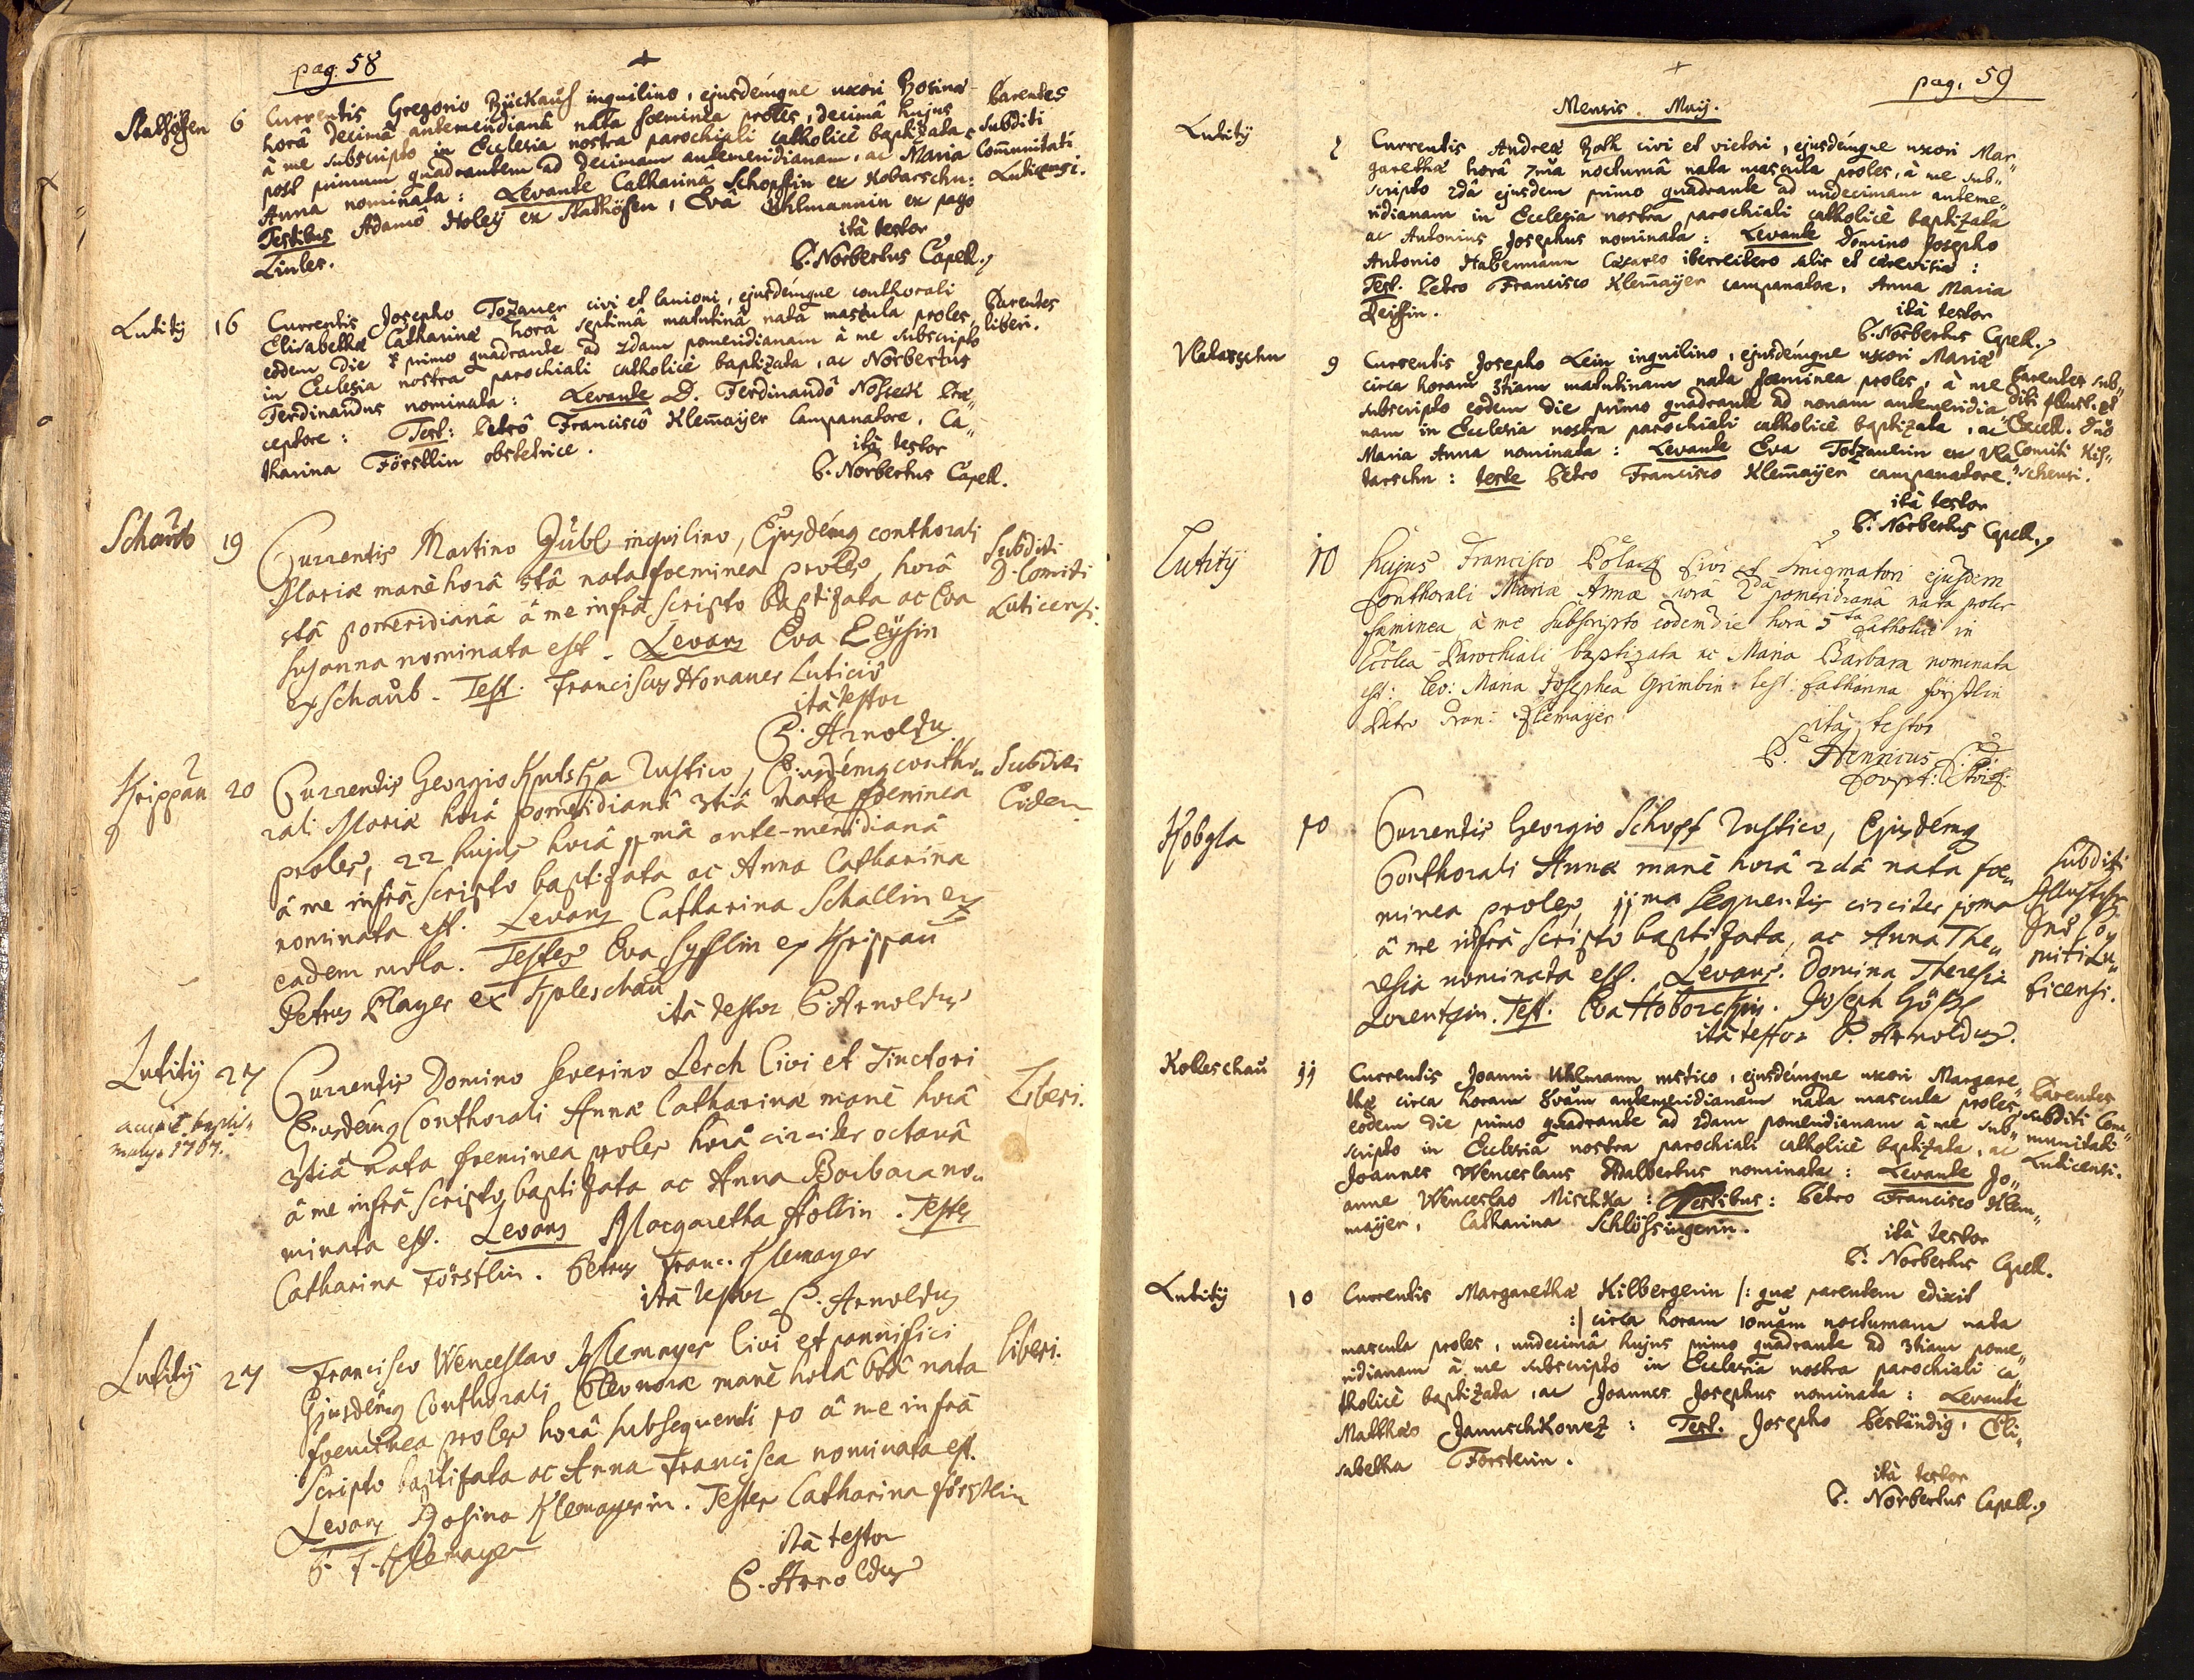 pag. 58
Stathöfen 6 Currentis Gregorio inquilino, ejusdémque uxori Rosinae Parentes
horâ decimâ antemeridianâ nata foeminea proles, decimâ hujus subditi
à me subscripto in Ecclesia nostra parochiali catholicè baptizata Communitati
post primum quadrantem ad decimam antemeridianam, ac Maria Luticensi.
Anna nominata: Levante Catharinâ Schopffin ex Kobarschn:
Testibus Adamô Holeÿ ex Stathöfen, Evâ Uhlmannin ex pago
Lintes.
ità testor
P. Norbertus Capell.
Lutitÿ 16 Currentis Josepho Tozauer civi et lanioni, ejusdémque conthorali Parentes
Elisabethae Catharinae horâ septimâ matutinâ nata mascula proles, liberi.
eodem die primo quadrante ad 2dam pomeridianam à me subscripto
in Ecclesia nostra parochiali catholicè baptizata, ac Norbertus
Ferdinandus nominata: Levante D. Ferdinandô Nosseck Prae„
ceptore: Test: Petrô Franciscô Klem̄aÿer Campanatore, Ca„
tharina Förstlin obstetrice.
ità testor
P. Norbertus Capell.
Schaúb 19 Currentis Martino Gübl inquilino, Ejusdémq conthorali Subditi
Mariae manè horâ 5tâ nata foeminea proles, horâ D. Comiti
5tâ pomeridianâ â me infrà scripto baptizata ac Eva Luticensi.
Susanna nominata est. Levans Eva Leÿsin
ex Schaúb. Test. Franciscus Honauer Lutició
ità testor
P. Arnoldus
Krippaú 20 Currentis Georgio Rustico, Ejusdémq contho„ Subditi
rali Mariae horâ pomeridianâ 3tiâ nata foeminea Eidem
proles, 22 hujus horâ 11mâ ante-meridianâ
â me infrà scripto baptizata ac Anna Catharina
nominata est. Levans Catharina Schallin ex
eadem mola. Testes Eva ex Krippaú
Petrus Player ex Koleschaú
ità testor P. Arnoldus
Lutitÿ 27 Currentis Domino Severino Lerch Civi et Tinctori
Ejusdémq Conthorali Annae Catharinae manè horâ Liberi.
3tiâ nata foeminea proles horâ circiter octavâ
â me infrà scripto baptizata ac Anna Barbara no„
minata est. Levans Margaretha Hollin. Testes
Catharina Förstlin. Petrus Franc. Klemayer
ità testor P. Arnoldus
Lutitÿ 27 Francisco Wenceslao Klemayer Civi et pannifici liberi.
Ejusdémq Conthorali Eleonorae manè horâ 6tâ nata
foeminea proles horâ subsequenti 10 â me infrà
scripto baptizata ac Anna Francisca nominata est.
Levans Rosina Klemayerin. Testes Catharina Förstlin
P. F. Klemayer
ità testor
P. Arnoldus
pag. 59
Mensis Maÿ.
Lutitÿ Currentis Andreae Roth civi et vietori, ejusdémque uxori Mar„
garethae horâ 7mâ nocturnâ nata mascula proles, à me sub„
scripto 2dâ ejusdem primo quadrante ad undecimam anteme„
ridianam in Ecclesia nostra parochiali catholicè baptizata
ac Antonius Josephus nominata: Levante Domino Josepho
Antonio Habermann Caesareo salis et cerevisiae:
Test. Petro Francisco Klem̄aÿer campanatore, Anna Maria
ità testor
P. Norbertus Capell.
Vlatarschn 9 Currentis Josepho Lein inquilino, ejusdémque uxori Mariae
circa horam 3tiam matutinam nata foeminea proles, à me Parentes sub„
subscripto eodem die primo quadrante ad nonam antemeridia„ diti Illust. et
nam in Ecclesia nostra parochiali catholicè baptizata, ac Excell. Dn̄o
Maria Anna nominata: Levante Eva Totzauerin ex Vla„ Comiti Kis„
tarschn: teste Petro Francisco Klem̄aÿer campanatore. schensi.
ità testor
P. Norbertus Capell.
Lutitÿ 10 hujus Francisco Polack civi et Smigmatori ejusdem
Conthorali Mariae Annae horâ 2dâ pomeridianâ nata proles
faeminea à me subscripto eodem die hora 5ta Catholicè in
Ecclia Parochiali baptizata ac Maria Barbara nominata
est: Lev: Maria Josepha Grimbin: test: Catharina Förstlin
Petro Fran: Klemaÿer
ità testor
P. Henricus
Kobyla 10 Currentis Georgio Schopf Rustico, Ejusdémq
Conthorali Annae manè horâ 2dâ nata foe„ subditi
minea proles, 11ma sequentis circiter 10ma
â me infrà scripto baptizata, ac Anna The„ Dn̄o Co„
resia nominata est. Levans. Domina Theresia miti Lu„
Lorentzin. Test. Eva Joseph ticensi.
ità testor P. Arnoldus.
Kolleschaú 11 Currentis Joanni Uhlmann rustico, ejusdémque uxori Margare„
thae circa horam 8vam antemeridianam nata mascula proles, Parentes
eodem die primo quadrante ad 2dam pomeridianam à me sub„ subditi Com„
scripto in Ecclesia nostra parochiali catholicè baptizata, ac munitati
Joannes Wenceslaus Adalbertus nominata: Levante Jo„ Luticensi.
anne Wenceslao Mischka: Testibus: Petro Francisco Klem„
maÿer, Catharina Schlössingerin.
ità testor
P. Norbertus Capell.
Lutitÿ 10 Currentis Margarethae Kilbergerin /: quae parentem edixit
:/ circa horam 10mam nocturnam nata
mascula proles, undecimâ hujus primo quadrante ad 3tiam pome„
ridianam à me subscripto in Ecclesia nostra parochiali ca„
tholicè baptizata, ac Joannes Josephus nominata: Levante
Mathaeo Januschkowez: Test. Josepho Beständig, Eli„
sabetha Försterin.
ità testor
P. Norbertus Capell.